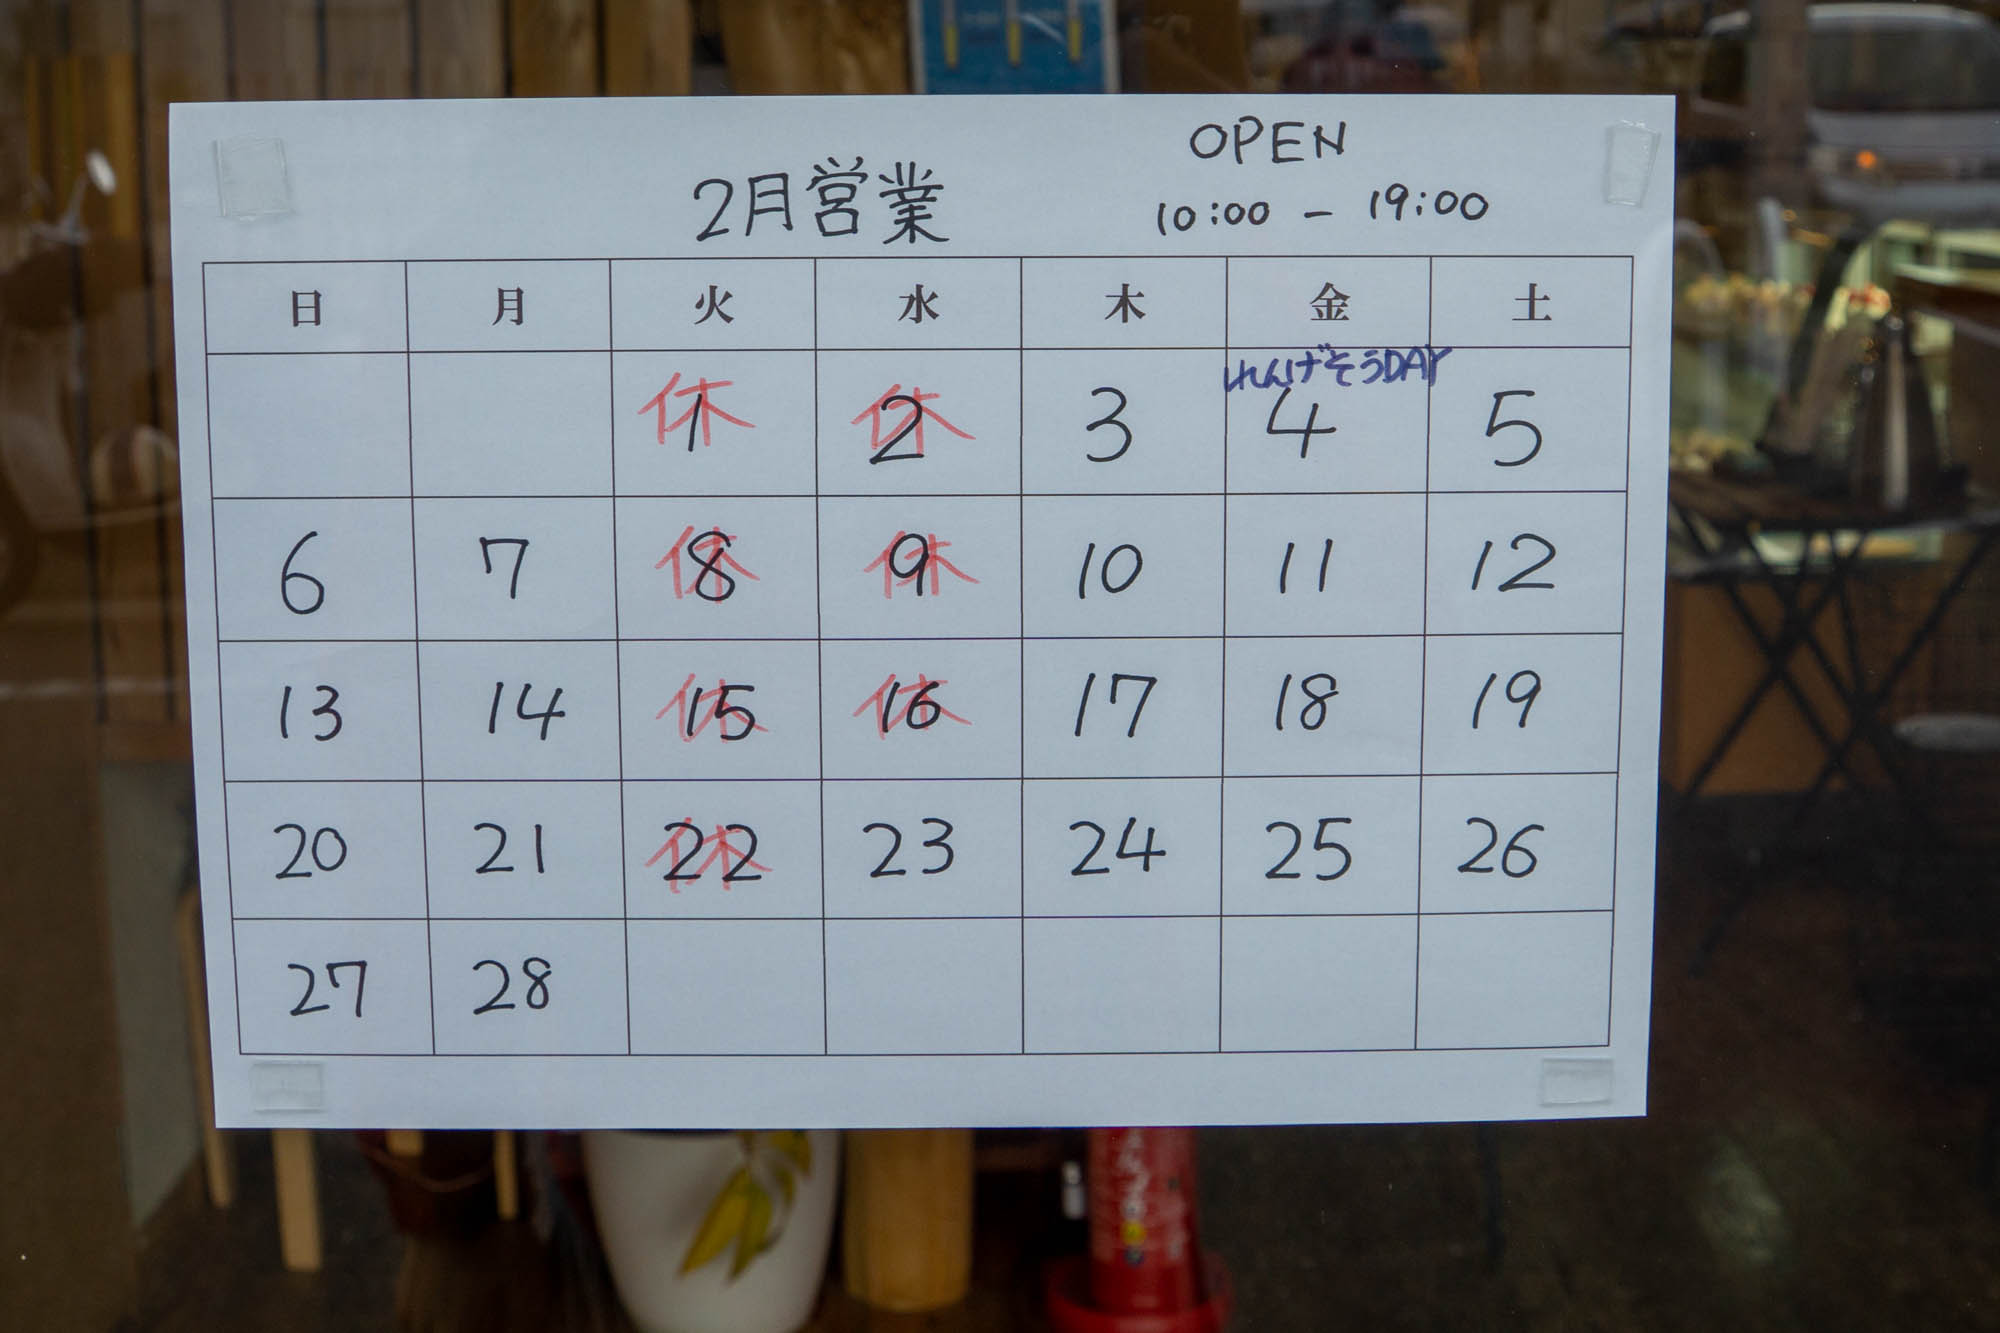 OPEN
2月営業 10:00 - 19:00
日 月 火 水 木 金 土
れんげそうDAY
休 1 休 2 3 4 5
6 7 休 8 休 9 10 11 12
13 14 休 15 休 16 17 18 19
20 21 休 22 23 24 25 26
27 28